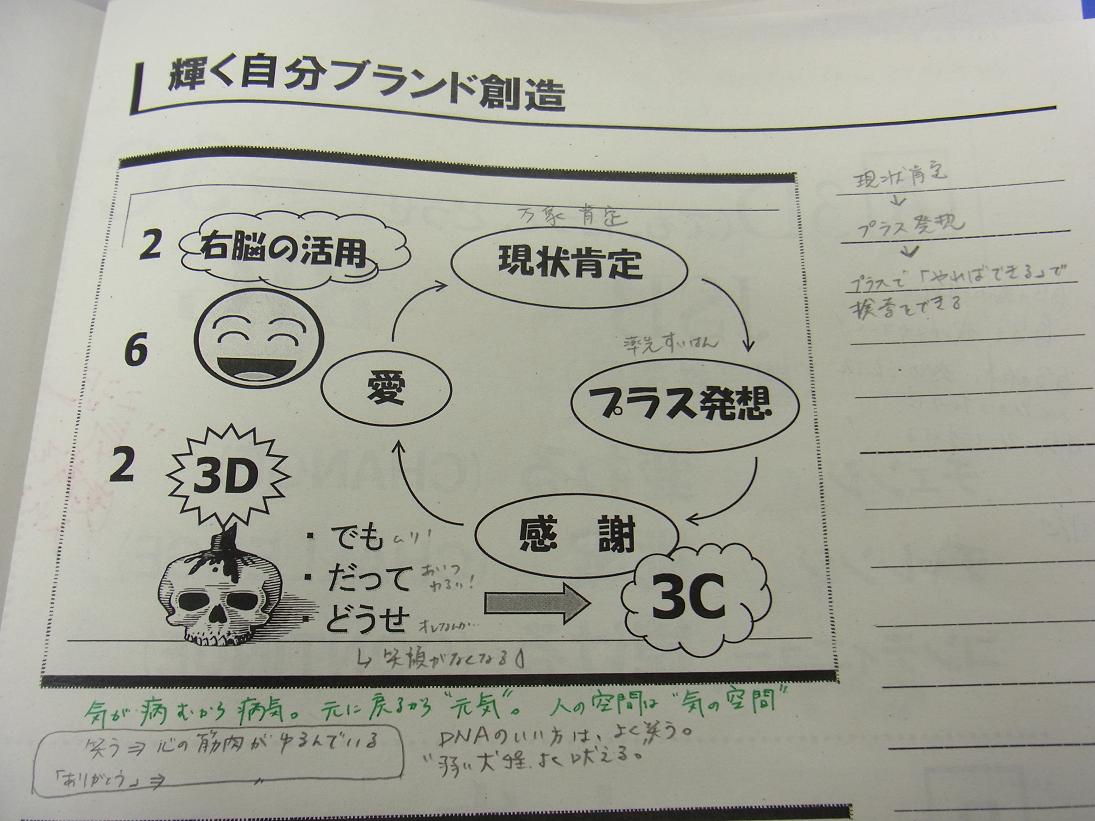 輝く自分ブランド創造
万象肯定
2 右脳の活用
現状肯定
6
率先すいはん
愛
プラス発想
2 3D
感 謝
・でも ムリ!
・だって あいつ
わるい!
・どうせ オレなんか…
3C
↳ 笑顔がなくなる
気が病むから病気。元に戻るから"元気"。人の空間は"気の空間"
笑う⇒心の筋肉がゆるんでいる
「ありがとう」⇒ 〃
DNAのいい方は、よく笑う。
"弱い犬程よく吠える。
現状肯定
↓
プラス発想
↓
プラスで「やればできる」で